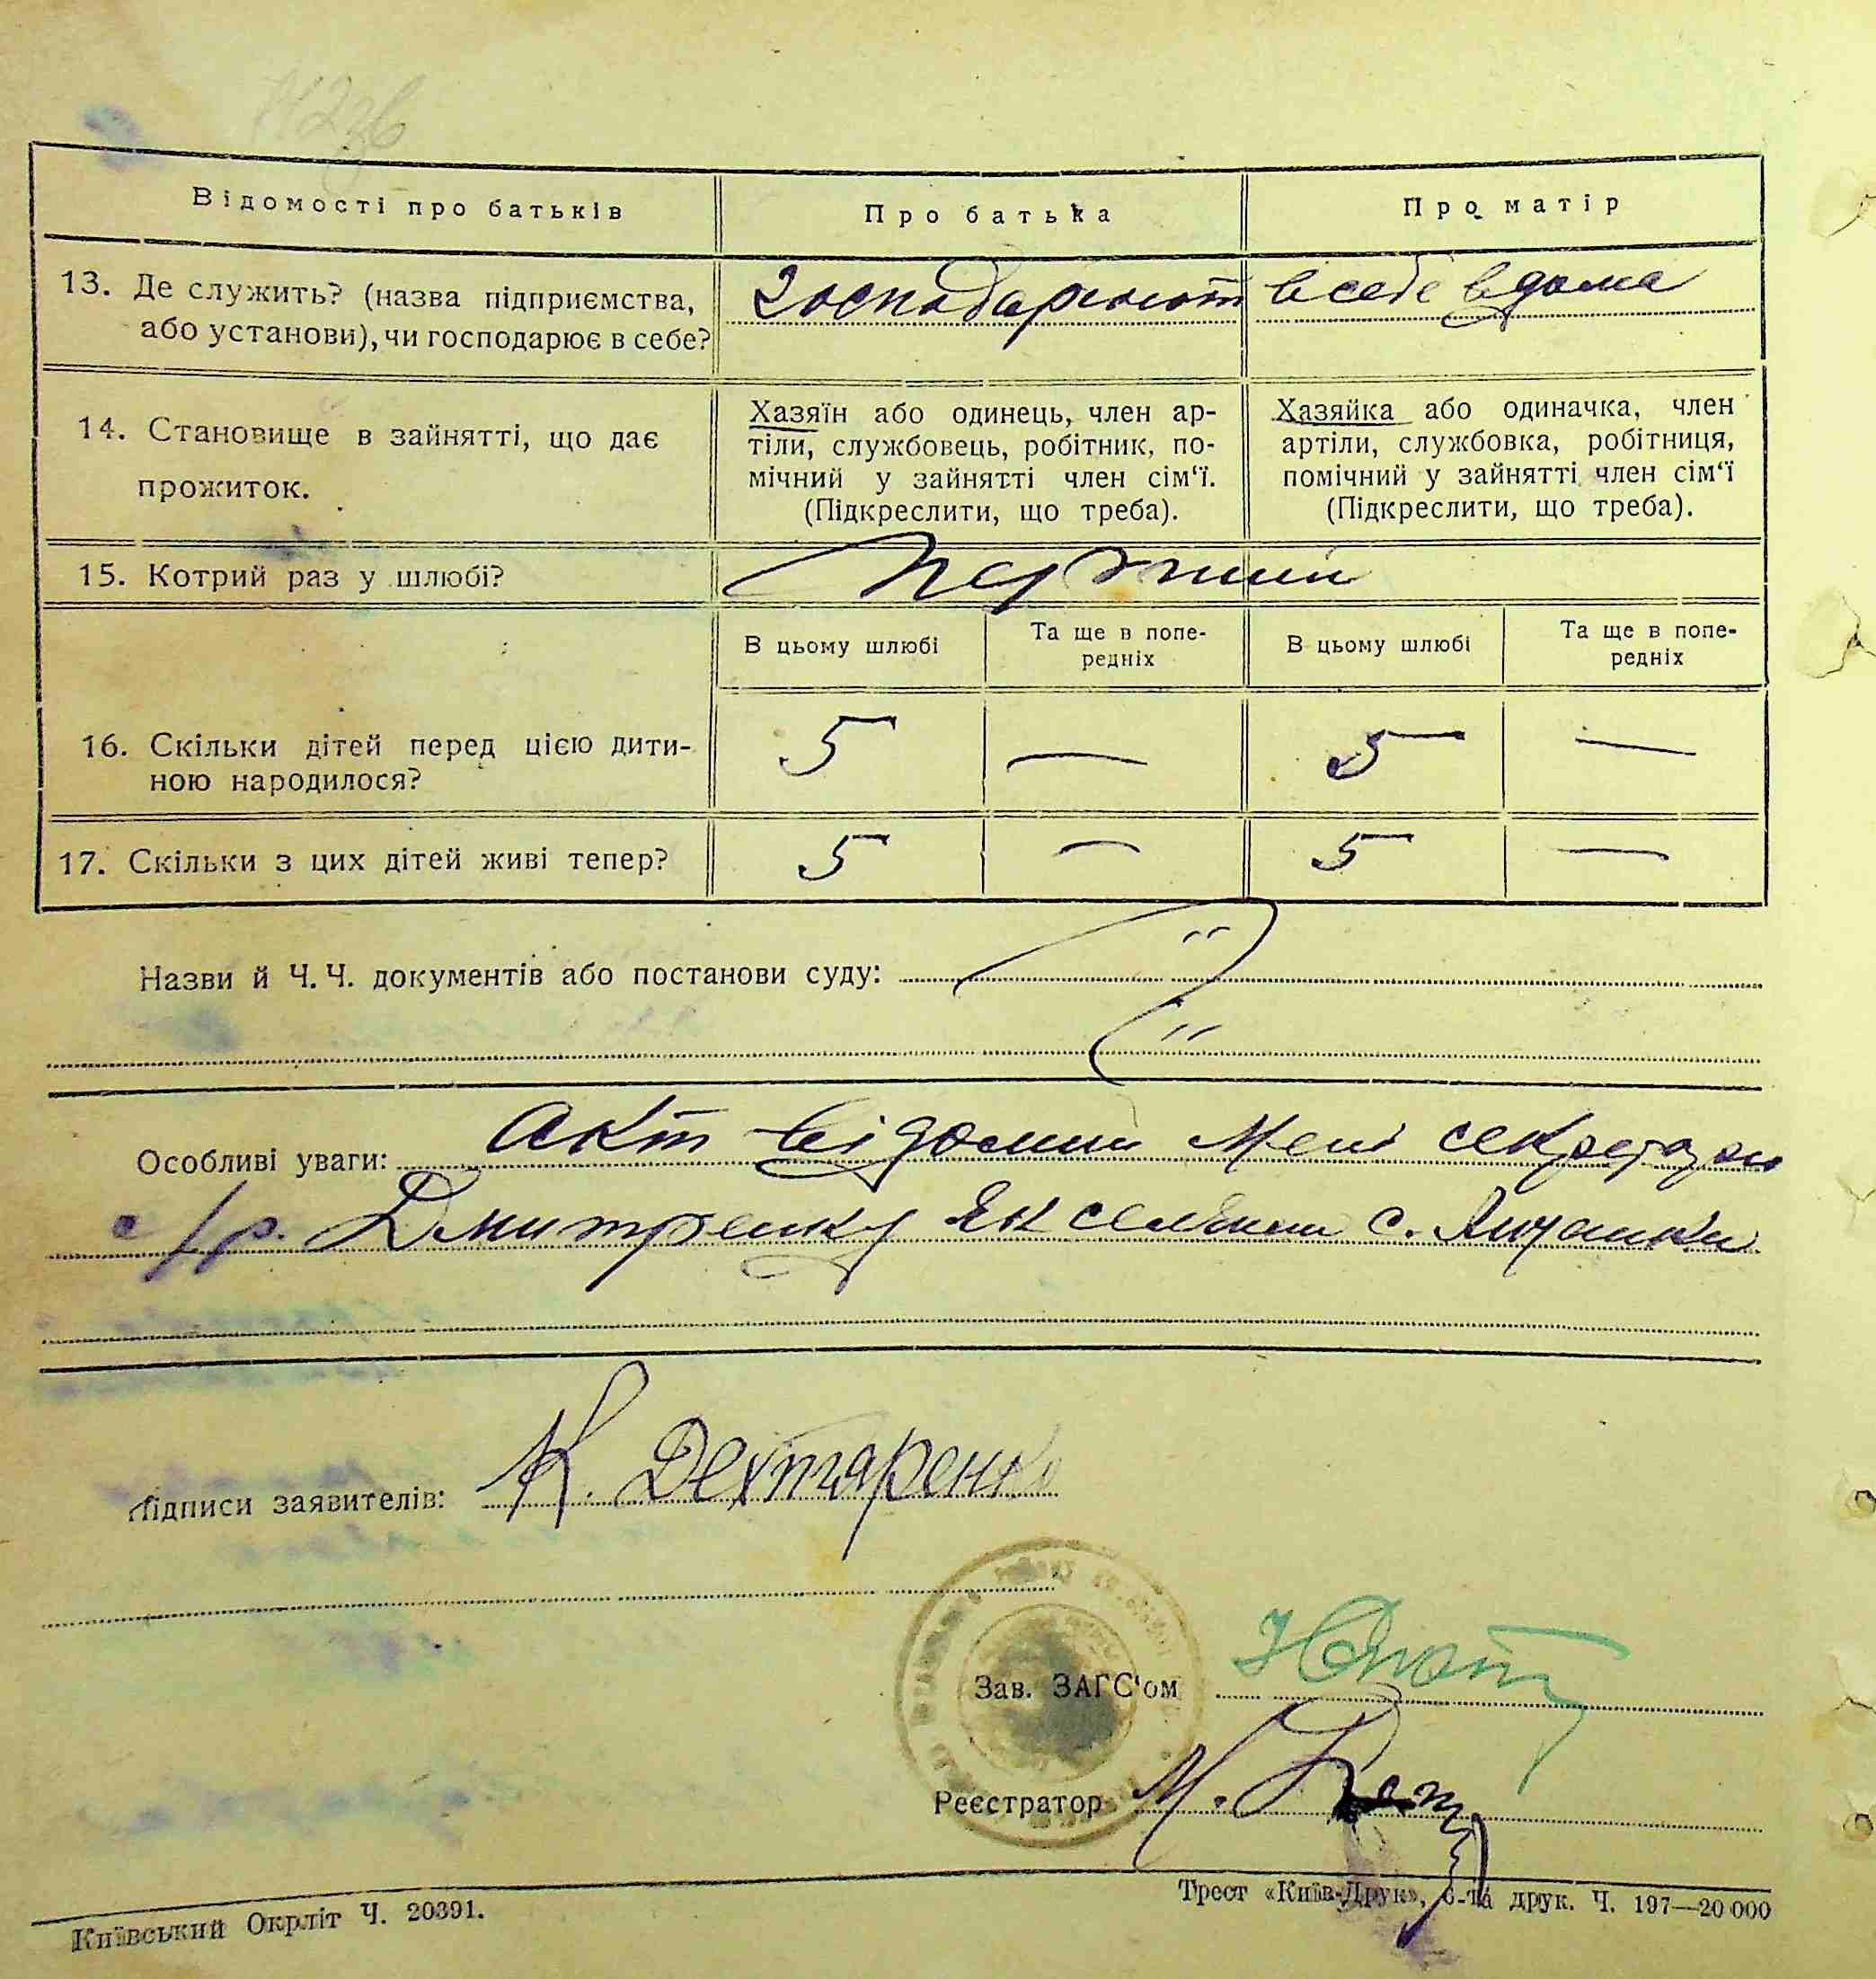 Відомості про батьків
Про батька
Про матір
13. Де служить? (назва підприємства, або установи), чи господарює в себе?
Господарюют в себе вдома
14. Становище в зайнятті, що дає прожиток.
Хазяїн або одинець, член ар-
тіли, службовець, робітник, по-
мічний у зайнятті член сім‘ї.
(Підкреслити, що треба).
Хазяйка або одиначка, член
артіли, службовка, робітниця,
помічний у зайнятті член сім‘ї
(Підкреслити, що треба).
15. Котрий раз у шлюбі?
Перший
В цьому шлюбі
Та ще в попе-
редніх
В цьому шлюбі
Та ще в попе-
редніх
16. Скільки дітей перед цією дити-
ною народилося?
5 — 5 —
17. Скільки з цих дітей живі тепер?
5 — 5 —
Назви й Ч. Ч. документів або постанови суду:
Особливі уваги: Акт відомий мені секретарю
с/р. Дмитренку як селянин с.
Підписи заявителів: К. Дехтаренко
Зав. ЗАГС'ом
Реєстратор М.
Київський Окрліт Ч. 20391.
Трест «Київ-Друк», 6-та друк. Ч. 197—20 000